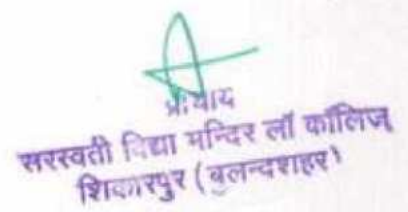 प्राचार्य
सरस्वती विद्या मन्दिर लॉ कॉलिज्
शिकारपुर (बुलन्दशहर)